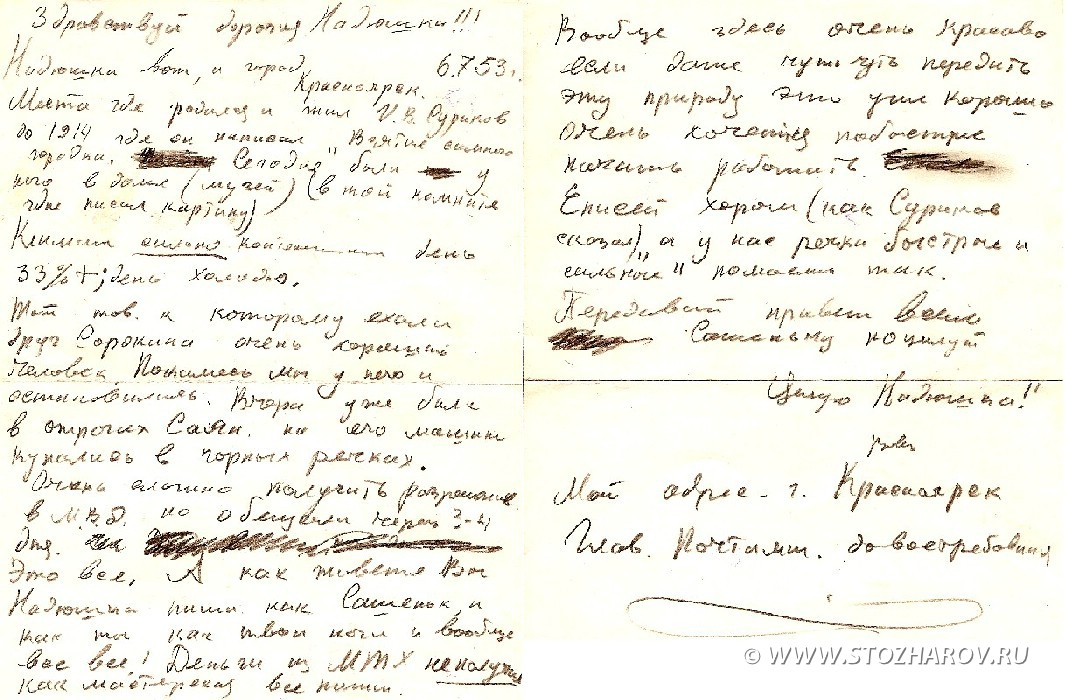 Здравствуй дорогая Надюшка!!!
Надюшка вот и город
Красноярск.
6.7.53г.
Места где родился и жил И.В. Суриков
до 1914 где он написал "Взятие снежного
городка." Сегодня были у
него в доме (музей) (в той комнате
где писал картину)
Климат сильно день
33%+; день холодно.
Тот тов. к которому ехали
друг Сорокина очень хороший
человек мы у него и
остановились. Вчера уже были
в отрогах Саян. на его машине
купались в горных речках.
Очень сложно получить разрешение
в М.В.Д. но обещали через 3-4
дня.
Это все. А как живете Вы
Надюшка пиши как Сашенька, и
как ты как твои ноги и вообще
все все! Деньги из МТХ не получил
как мастерская все пиши.
Вообще здесь очень красиво
если даже чуть чуть передать
эту природу это уже хорошо
Очень хочется побыстрее
начать работать.
Енисей хорош (как Суриков
сказал), а у нас речки быстрые и
сильные" ломает так.
Передавай привет всем
Сашеньку поцелуй
Целую Надюшка!"
Мой адрес - г. Красноярск
Глав. Почтамт. довостребования
© WWW.STOZHAROV.RU